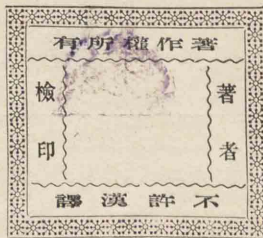 著作權所有
著者
檢印
不許漢譯